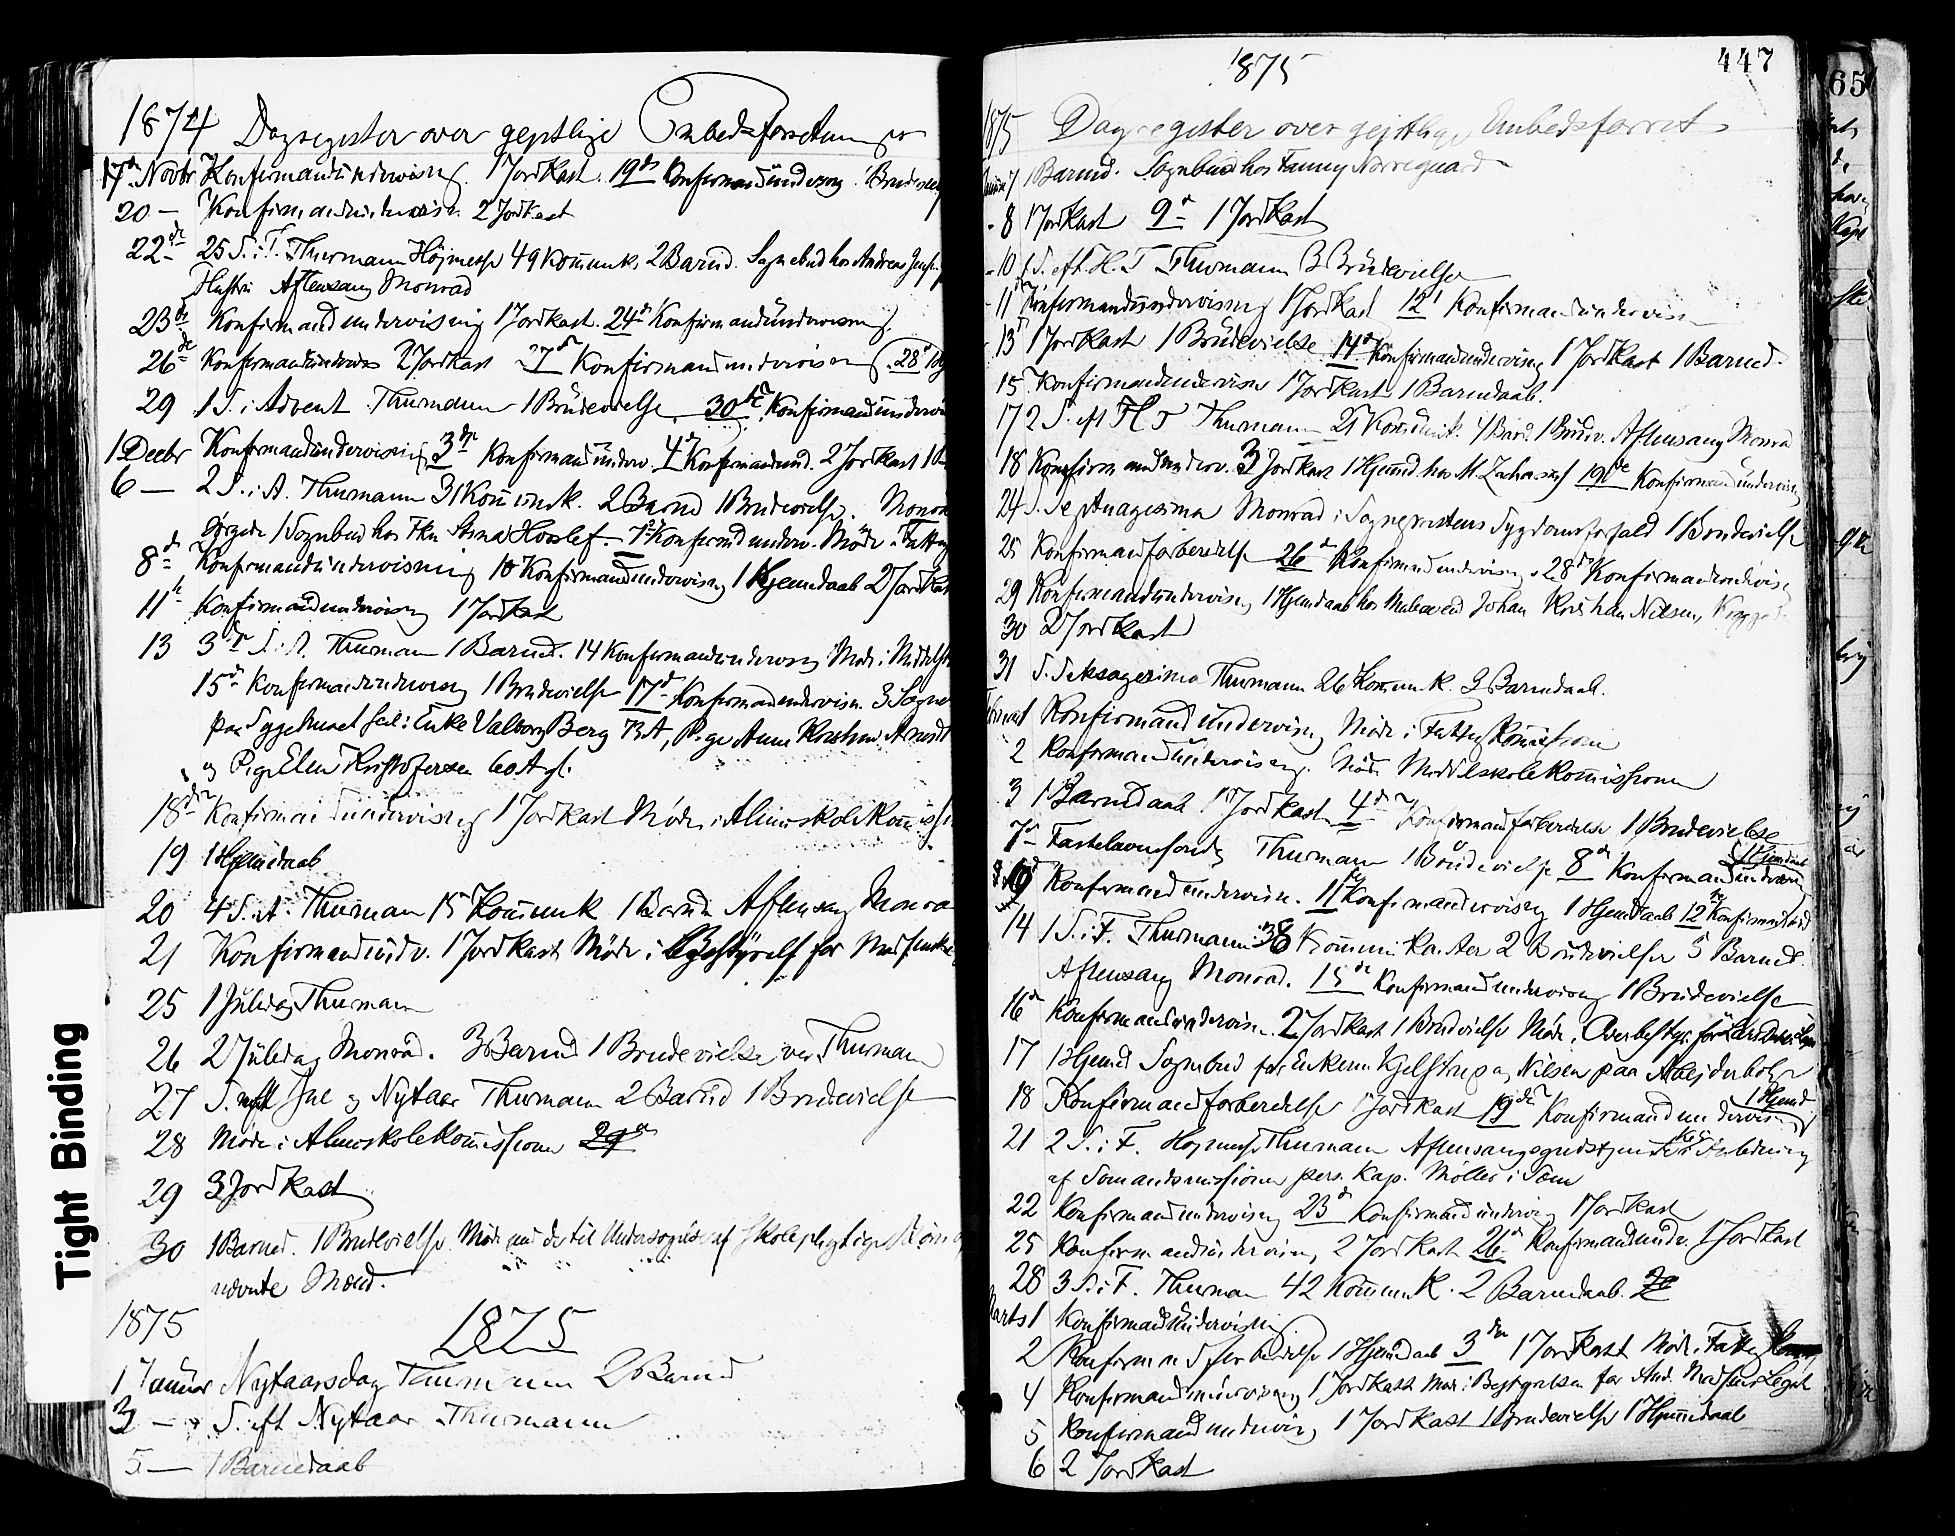 1874 Dagregister over gejstlige Embedsforretninger
17de Novbr Konfirmandundervisning. 1 Jordkast. 19de Konfirmandundervisng.
20 — Konfirmandundervisn 2 Jordkast
22de 25 S. i T. Thurmann Højmesse 49 Kommunk. 2 Barned. Sognebud hos Andreas
Hustru Aftensang Monrad
23de Konfirmandundervisning 1 Jordkast. 24de Konfirmandundervisning.
26de Konfirmandundervis 2 Jordkast 27de Konfirmandundervisn 28de
29 1 S. i Advent Thurmann 1 Brudevielse 30te Konfirmandunderv
1 Decbr Konfirmandundervisning 3die Konfirmandunderv. 4de Konfirmandund. 2 Jordkast
6 — 2 S. i A. Thurmann 31 Kommunk. 2 Barnd 1 Brudevielse. Monrad
1 Sognebud hos Anna 7de Konfirmd underv. Møde i
8de Konfirmandundervisning 10 Konfirmandundervisng 1 Hjemdaab 2 Jordkast
11te Konfirmandundervisng 1 Jordkast
13 3die S. i A. Thurman 1 Barned. 14 Konfirmandundervisng Møde i
15de Konfirmandundervisng 1 Brudevielse 17de Konfirmandundervisn. 3 Sogne
paa Sygehuset Enke Valborg Berg 73 A, Pige Anne
og Pige Ellen Kristofersen 60 A gl.
18de Konfirmandundervisng 1 Jordkast Møde i Almueskolekommissi
19 1 Hjemdaab
20 4 S. A. Thurman 15 Kommunk 1 Barnd Aftensang Monra
21 Konfirmandundv. 1 Jordkast Møde i Bestyrelse for
25 1 Juledag Thurmann
26 2 Juledag Monrad. 3 Barned 1 Brudevielse ved Thurman
27 S. mell Jul og Nytaar Thurmann 2 Barnd 1 Brudevielse
28 Møde i Almueskolekommissionen 29de
29 3 Jordkast
30 1 Barned. 1 Brudevielse Møde med de til Undersøgelse af skolepligtige Børn
nævnte Mænd.
1875 1875
1 Januar Nytaarsdag Thurmann 2 Barned
3 — S. eft Nytaar Thurmann
5 — 1 Barnedaab
447
1875
1875 Dagregister over gejstlige Embedsforret
7 1 Barned. Sognebud hos Fanny Norregaard
- 8 1 Jordkast 9de 1 Jordkast
- 10 1 S. eft. H. T Thurmann 3 Brudevielser
- 11 Konfirmandundervisning 1 Jordkast 12te Konfirmandundervisn
13de 1 Jordkast 1 Brudevielse 14de Konfirmandundervisng 1 Jordkast 1 Barned.
15 Konfirmandundervisn 1 Jordkast 1 Barnedaab.
17 2 S. eft H T Thurmann 21 Kommunik. 4 Barnd. 1 Brudv. Aftensang Monrad
18 Konfirmandunderv. 3 Jordkast 1 Hjemd hos M. Zachariassen 19de Konfirmandundervisng
24 S. Septuagesima Monrad i Sognepræstens Sygdomsforfald 1 Brudevielse
25 Konfirmandforberedelse 26de Konfirmandundervisng 28de Konfirmandundervisn
29 Konfirmandundervisng 1 Hjemdaab hos Johan Kristian Nilsen,
30 2 Jordkast
31 S. Seksagesima Thurmann 26 Kommunk. 3 Barnedaab.
1 Konfirmandundervisng Møde i Fattigkommissionen
2 Konfirmandundervisng. Møde Middelskolekommissionen
3 1 Barnedaab 1 Jordkast 4de Konfirmandforberedelse 1 Brudevielse
7de Fastelavnssøndag Thurmann 1 Brudevielse 8de Konfirmandunderv 1 Hjemdaab
9de Konfirmandundervisn. 11te Konfirmandervisng 1 Hjemdaab 12te
14 1 S. i F. Thurmann 38 Kommunikanter 2 Brudevielser 5 Barned.
Aftensang Monrad. 15de Konfirmandundervisng 1 Brudevielse
16de Konfirmandundervisn. 2 Jordkast 1 Brudvielse Møde i
17 1 Hjemd Sognebud for Enkerne Kjelstrup og Nilsen paa Arbejderbolg
18 Konfirmandforberedelse 1 Jordkast 19de Konfirmandundervisn 1 Hjemd
21 2 S. i F. Højmesse Thurmann Aftensangsgudstjeneste i Anledning
af Sømandsmissionen pers. Kap. Møller i Søm
22 Konfirmandundervisng 23de Konfirmandundervng 1 Jordkast
25 Konfirmandundervisn, 2 Jordkast 26de Konfirmandundv. 1 Jordkast
28 3 S. i F. Thurman 42 Kommunk. 2 Barnedaab.
Marts 1 Konfirmandundervisning
2 Konfirmandforberedelse 1 Hjemdaab 3die 1 Jordkast Møde i Fattig
4 Konfirmandundervisning 1 Jordkast Møde i Bestyrelsen for And. Madsens Legat
5 Konfirmandundervisng 1 Jordkast 1 Brudevielse 1 Hjemmedaab
6 2 Jordkast
65
Tight Binding